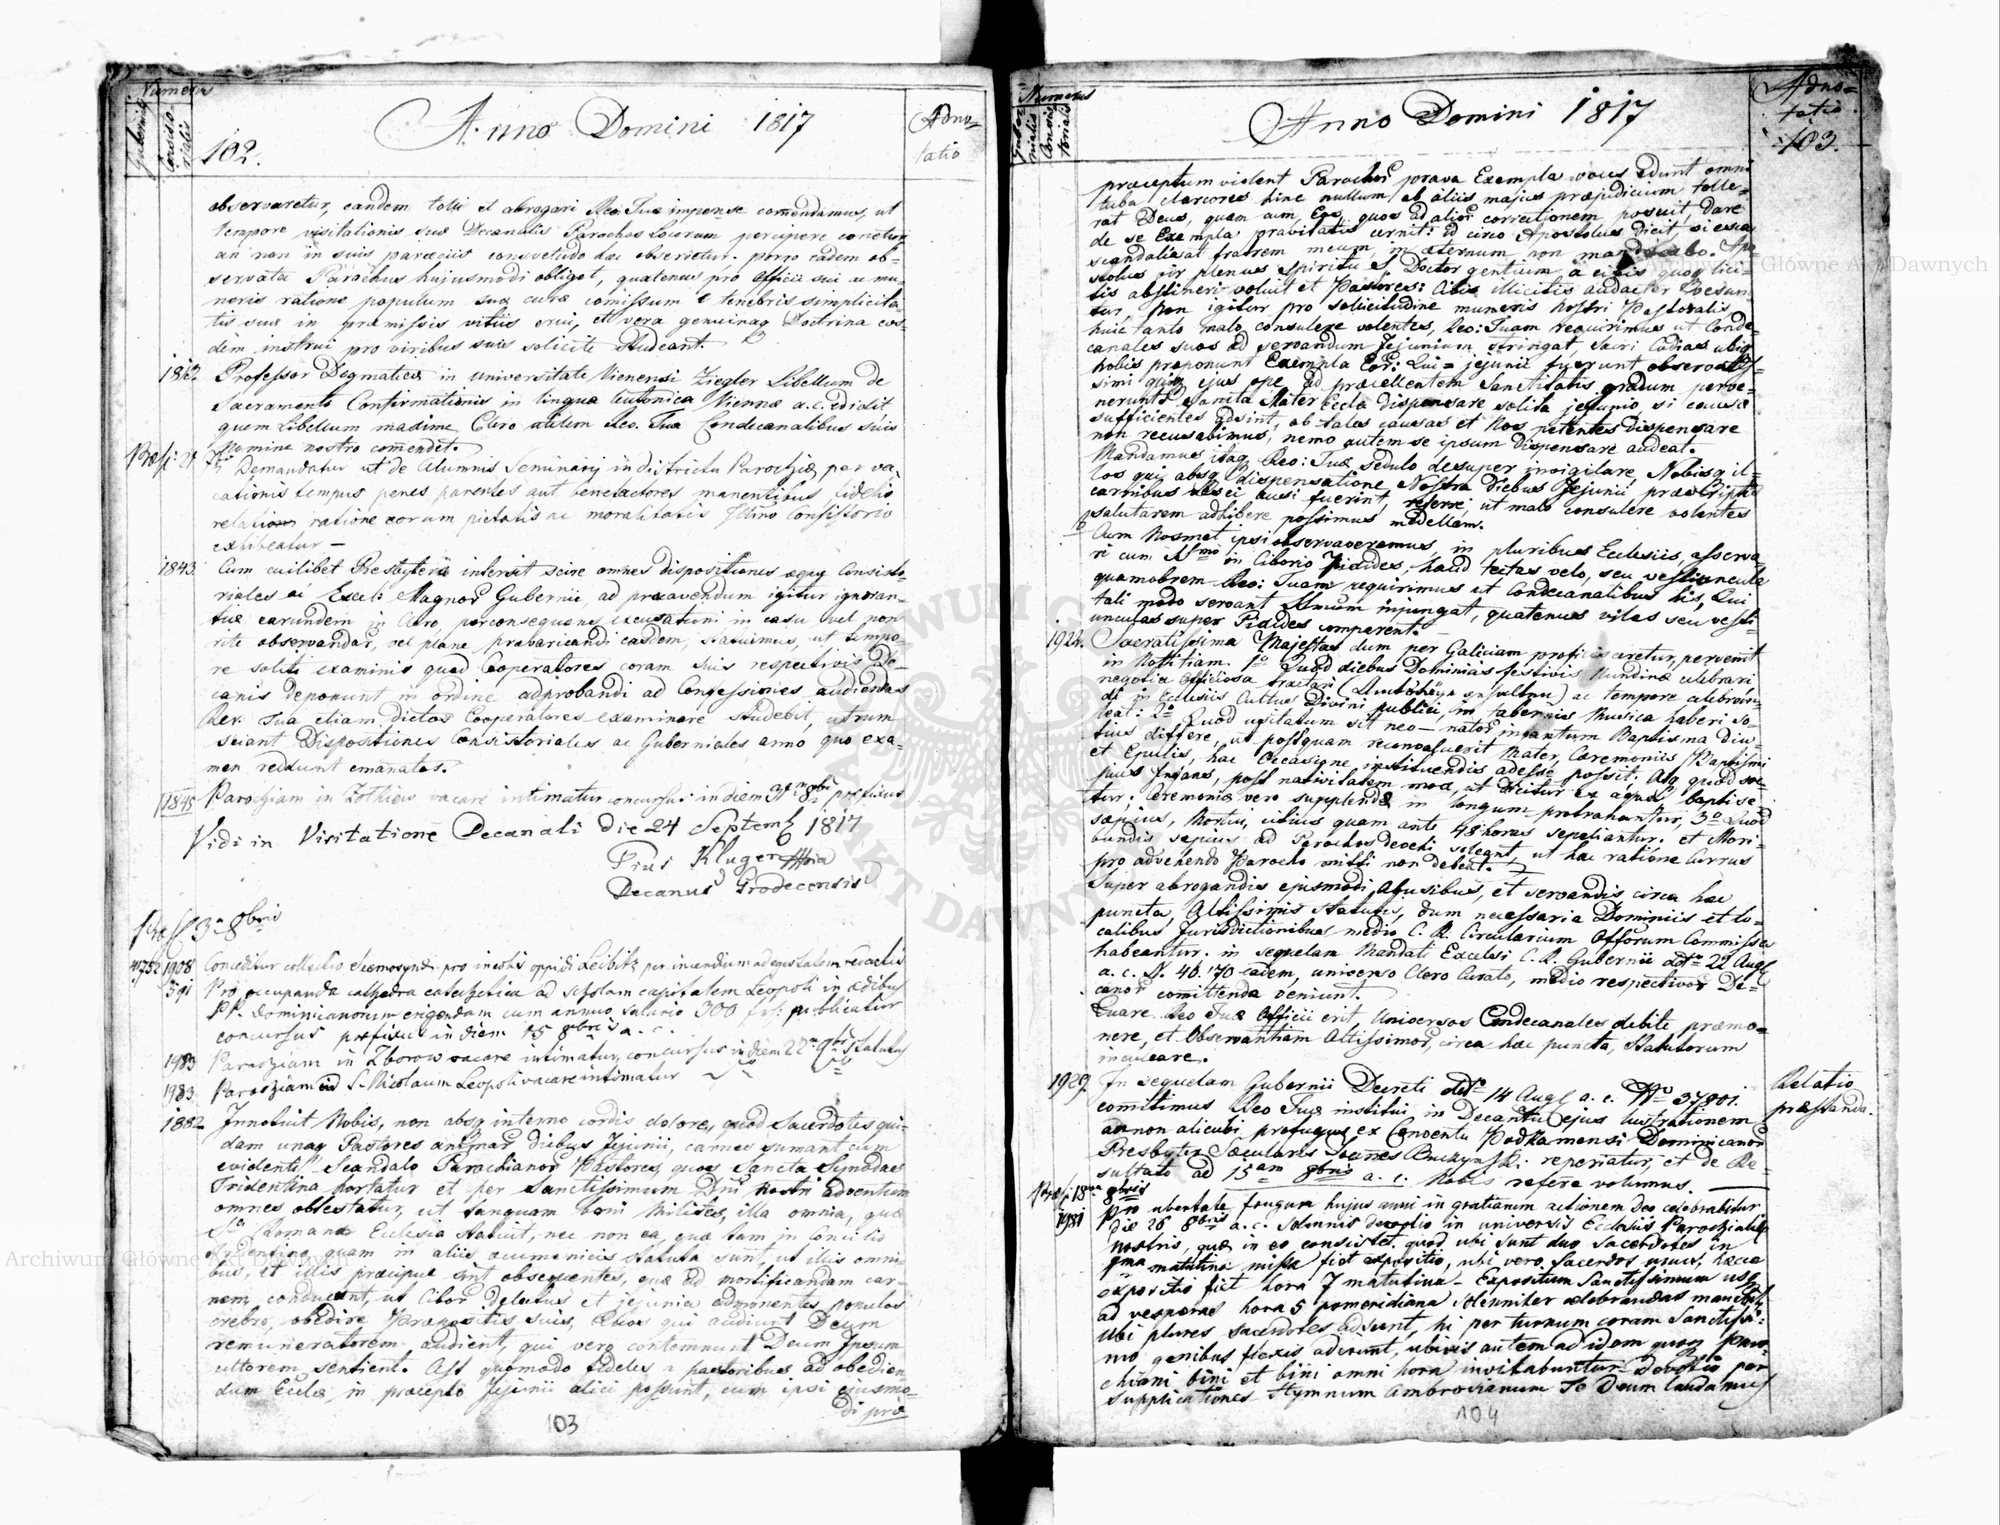 Numerus
Gubernialis
Consistorialis
102.
Anno Domini 1817
Adno=
tatio
observaretur, eandem tolli et abrogari Reo: Tuae impense comendamus, ut
tempore visitationis suae Decanalis Parochos Locorum percipere conetur
an non in suis paraeciis consvetudo haec observetur. porro eadem ob=
servata Parochus hujusmodi obliget, quatenus pro officii sui ac mu
neris ratione populum suae curae comissum e tenebris simplicita
tis suae in praemissis vitiis erui, et vera genuinaq Doctrina eos
dem instrui pro viribus suis solicite studeant.
1812 Professor Dogmatices in universitate Vienensi Ziegler Libellum de
Sacramento Confirmationis in lingua teutonica Viennae a. c. edidit,
quem Libellum maxime Clero utilem Reo. Tua Condecanalibus suis
Nomine nostro comendet.
Demandatur ut de Alumnis Seminarij in districtu Parochiae per va
cationis tempus penes parentes aut benefactores manentibus fidelis
relatio ratione eorum pietatis ac moralitatis Illmo Consistorio
exhibeatur —
1843. Cum cuilibet Presbyterii intersit scire omnes dispositiones aeque Consisto=
riales ac Excel: Magnor Gubernii, ad praecavendum igitur ignoran=
tiae earundem in Clero, per consequens excusationi in casu vel non
rite observandar, vel plane praevaricandi easdem, statuimus, ut tempo
re soliti examinis quod Cooperatores coram suis respectivis De=
canis deponunt in ordine adprobandi ad Confessiones audiendas
Rev. Tua etiam dictos Cooperatores examinare studebit, utrum
sciant Dispositiones Consistoriales ac Guberniales anno quo exa=
men reddunt emanatas.
1845 Parochiam in vacare intimatur concursus in diem 31 8bris praefixus
Vidi in Visitatione Decanali die 24 Septemb 1817
Pius Kluger
Decanus Grodecensis
Praes 3a 8bris
1908 Conceditur collectio eleemosynae pro incolis oppidi Leibitz per incendium ad egestatem redactis
591 Pro occupanda cathedra catechetica ad scholam capitalem Leopoli in aedibus
PP. Dominicanorum erigendam cum annuo salario 300 publicatur
concursus praefixus in diem 15 8bris a. c.
1983 Parochiam in Zborow vacare intimatur, concursus in diem 22 9bris statutus
1983 Parochiam ad S. Nicolaum Leopoli vacare intimatur
1882 Innotuit Nobis, non absq interno cordis dolore, quod Sacerdotes qui=
dam unaq Pastores animar diebus Jejunii, carnes sumant cum
evidenti Scandalo Parochianor Pastores, quos Sancta Synodus
Tridentina hortatur et per Sanctissimum Dni nostri adventum
omnes obtestatur, ut tanquam boni milites, illa omnia, quae
Sa Romana Ecclesia statuit, nec non ea, quae tam in Concilio
Tridentino, quam in aliis oecumenicis statuta sunt, ut illis omni=
bus, et illis praecipue sint obsequentes, quae ad mortificandam car=
nem conducunt, ut Cibor delectus et jejunia admonentes populos
crebro, obedire Praepositis suis, Quos qui audiunt Deum
remuneratorem audient, qui vero contemnunt Deum Ipsum
ultorem sentient. Ast quomodo fideles a pastoribus ad obedien
dum Ecclae, in praecepto Jejunii alici possunt, cum ipsi ejusmo=
di prae
103
Numerus
Gubernialis
Consistorialis
Anno Domini 1817
Adno=
tatio
103.
praeceptum violent Parochi prava Exempla vocis edunt omni
tuba clarcores hinc nullum ab aliis majus praejudicium tolle=
rat Deus, quam cum, Eos, quos ad alior correctionem posuit, Dare
de se Exempla pravitatis cernit: id circo Apostolus dicit, si esca
scandalisat fratrem meum in aeternum non manducabo. Apo
stolus vir plenus Spiritu S. Doctor gentium a cibis quoq lici=
tis abstineri voluit et Pastores: Cibis illicitis audacter vescun
tur, Non igitur pro solicitudine muneris nostri Pastoralis
huic tanto malo consulere volentes, Reo: Tuam requirimus ut Conde=
canales suos ad servandum Jejunium stringat, Sacri Codices ubiq
nobis proponunt Exempla Eor: Qui jejunii fuerunt observatis=
simi quiq ejus ope ad praecellentem Sanctitatis gradum perve=
nerunt Sancta Mater Eccla dispensare solita jejunio, si causae
sufficientes adsint, ob tales causas et Nos petentes dispensare
non recusabimus, nemo autem se ipsum dispensare audeat.
Mandamus itaq Reo: Tuae sedulo desuper invigilare, Nobisq il=
los qui absq dispensatione Nostra diebus Jejunii praescriptis
carnibus vesci ausi fuerint, referre, ut malo consulere volentes
salutarem adhibere possimus medellam.
Cum Nosmet ipsi observaveramus, in pluribus Ecclesiis, asserva=
ri cum Ssmo in Ciborio Pixides, haud tectas velo, seu vestiuncula
quamobrem Reo: Tuam requirimus ut Condecanalibus his, Qui
tali modo servant Ssmum injungat, quatenus vilas seu vesti=
unculas super Pixides comparent.
1924. Sacratissima Majestas dum per Galiciam proficisceretur, pervenit
in Notitiam. 1o Quod diebus Dominicis festivis Nundinae celebrari
negotia officiosa tractari ac tempore celebrari
di in Ecclesiis Cultus Divini publici, in tabernis Musica haberi so=
leat: 2o Quod usitatum sit neo-nator infantum Baptisma diu=
tius differe, ut postquam reconvaluerit Mater, Caeremoniis Baptismi
et Epulis, hac Occasione instituendis adesse possit; Atq quod sae
pius Infans, post nativitatem mox, ut dicitur ex aqua baptise
tur; Ceremoniae vero supplendae in longum protrahantur, 3o Quod
saepius, Mortui, citius quam ante 48 horas sepeliantur. et Mori=
bundis saepius ad Parochos devehi soleant, ut hac ratione Currus
pro advehendo Parocho mitti non debeat.
Super abrogandis ejusmodi Abusibus, et servandis circa haec
puncta, Altissimis statutis, dum necessaria Dominiis et lo=
calibus Jurisdictionibus medio C. R. Circularium Offorum Commissa
habeantur. in sequelam Mandati Excelsi C. R. Gubernii ddto 22 Augi
a. c. N. 46.170 eadem, universo Clero Curato, medio respectivor De=
canor comittenda veniunt.
Quare Reo Tuae Officii erit Universos Condecanales debite praemo=
nere, et Observantiam Altissimor, circa haec puncta, Statutorum
inculcare.
1927. In sequelam Gubernii Decreti ddto 14 Augi a. c. No 37801.
comitimus Reo Tuae institui in Decanatu ejus lustrationem
an non alicubi profugus ex Conventu Podkamensi Dominicanor
Presbyter Saecularis Joannes reperiatur, et de Re=
sultato ad 15am 8bris a. c. Nobis refere volumus.
Relatio
praestanda.
Praes 18va 8bris
1981 Pro ubertate frugum hujus anni in gratiarum actionem Deo celebrabitur
die 26 8bris a. c. Solennis devotio in universis Ecclesiis Parochialibus
nostris, quae in eo consistet. quod ubi sunt duo sacerdotes in
matutina missa fiet expositio, ubi vero Sacerdos unus, haecce
expositio fiet hora 7 matutina. Expositum Sanctissimum usq
ad vesperas hora 5 pomeridiana solenniter celebrandas manebit,
Ubi plures sacerdotes adsunt, hi per turnum coram Sanctissi=
mo genibus flexis aderunt, ubivis autem ad idem quoq Paro=
chiani bini et bini omni hora invitabuntur Devotio per
Supplicationes Hymnum Ambrosianum Te Deum laudamus
104
Archiwum Główne Akt Dawnych
Archiwum Główne Akt Dawnych